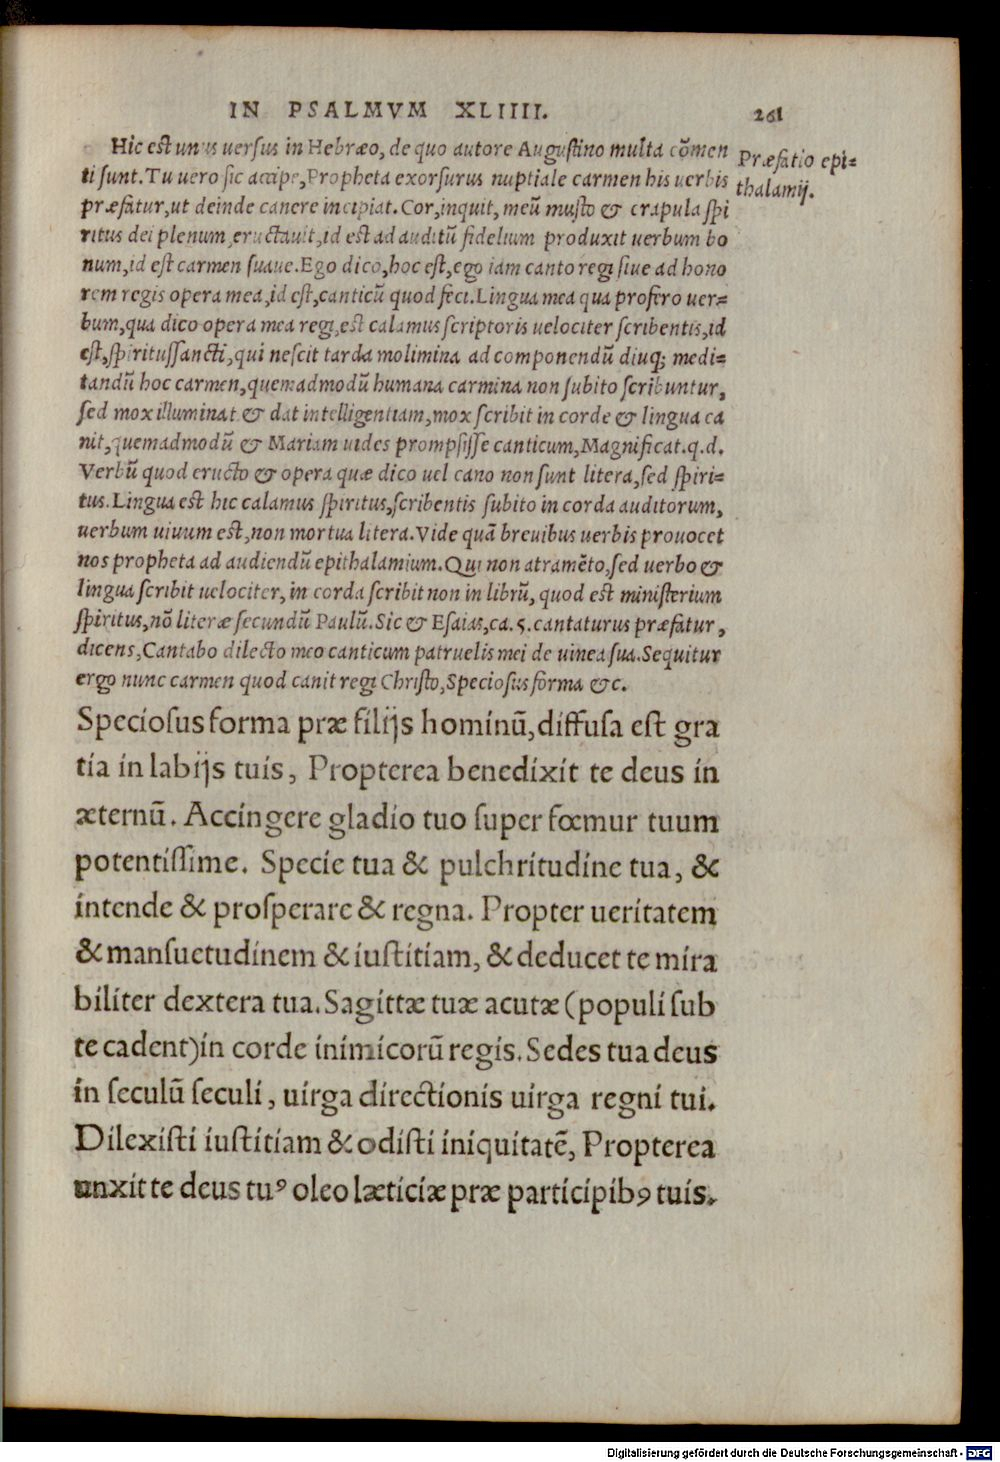 IN PSALMVM XLIIII. 261
Hic est unus uersus in Hebræo, de quo autore Augustino multa cõmen
ti sunt. Tu uero sic accipe, Propheta exorsurus nuptiale carmen his uerbis
præfatur, ut deinde canere incipiat. Cor, inquit, meũ musto & crapula spi
ritus dei plenum, eructauit, id est ad auditũ fidelium produxit uerbum bo
num, id est carmen suaue. Ego dico, hoc est, ego iam canto regi siue ad hono
rem regis opera mea, id est, canticũ quod feci. Lingua mea qua profero uer=
bum, qua dico opera mea regi, est calamus scriptoris uelociter scribentis, id
est, spiritussancti, qui nescit tarda molimina ad componendũ diuq; medi=
tandũ hoc carmen, quemadmodũ humana carmina non subito scribuntur,
sed mox illuminat & dat intelligentiam, mox scribit in corde & lingua ca
nit, quemadmodũ & Mariam uides prompsisse canticum, Magnificat. q.d.
Verbũ quod eructo & opera quæ dico uel cano non sunt litera, sed spiri=
tus. Lingua est hic calamus spiritus, scribentis subito in corda auditorum,
uerbum uiuum est, non mortua litera. Vide quã breuibus uerbis prouocet
nos propheta ad audiendũ epithalamium. Qui non atramẽto, sed uerbo &
lingua scribit uelociter, in corda scribit non in librũ, quod est ministerium
spiritus, nõ literæ secundũ Paulũ. Sic & Esaias, ca. 5. cantaturus præfatur,
dicens, Cantabo dilecto meo canticum patruelis mei de uinea sua. Sequitur
ergo nunc carmen quod canit regi Christo, Speciosus forma &c.
Præfatio epi=
thalamij.
Speciosus forma præ filijs hominũ, diffusa est gra
tia in labijs tuis, Propterea benedixit te deus in
æternũ. Accingere gladio tuo super fœmur tuum
potentissime. Specie tua & pulchritudine tua, &
intende & prosperare & regna. Propter ueritatem
& mansuetudinem & iustitiam, & deducet te mira
biliter dextera tua. Sagittæ tuæ acutæ (populi sub
te cadent) in corde inimicorũ regis. Sedes tua deus
in seculũ seculi, uirga directionis uirga regni tui.
Dilexisti iustitiam & odisti iniquitatẽ, Propterea
unxit te deus tuꝰ oleo læticiæ præ participibꝰ tuis.
Digitalisierung gefördert durch die Deutsche Forschungsgemeinschaft - DFG